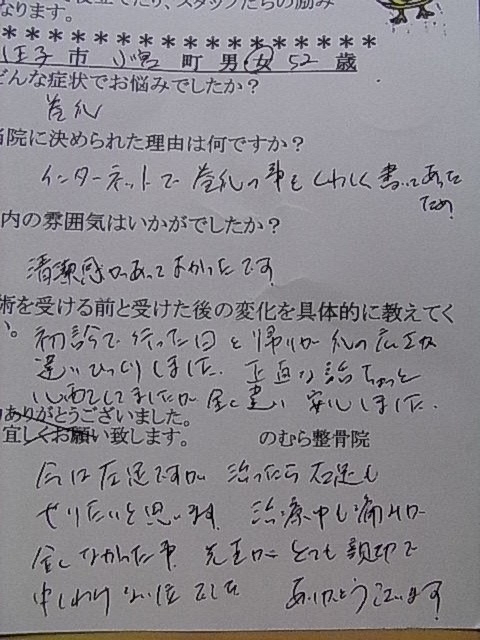 役立てたり、スタッフたちの励み
なります。
＊＊＊＊＊＊＊＊＊＊＊＊＊＊＊＊
王子 市 小宮 町 男・女 52 歳
どんな症状でお悩みでしたか？
巻爪
当院に決められた理由は何ですか？
インターネットで 巻爪の事をくわしく書いてあった
ため
内の雰囲気はいかがでしたか？
清潔感があってよかったです
術を受ける前と受けた後の変化を具体的に教えてく
。
初診で行った日と帰りが 爪の広さが
違いびっくりしました. 正直な話ちょっと
心配してましたが 全く違い 安心しました.
ありがとうございました。
宜しくお願い致します。 のむら整骨院
今は左足ですが 治ったら右足も
やりたいと思います. 治療中も痛みが
全くなかった事. 先生が とても親切で
申しわけない位でした ありがとうございます